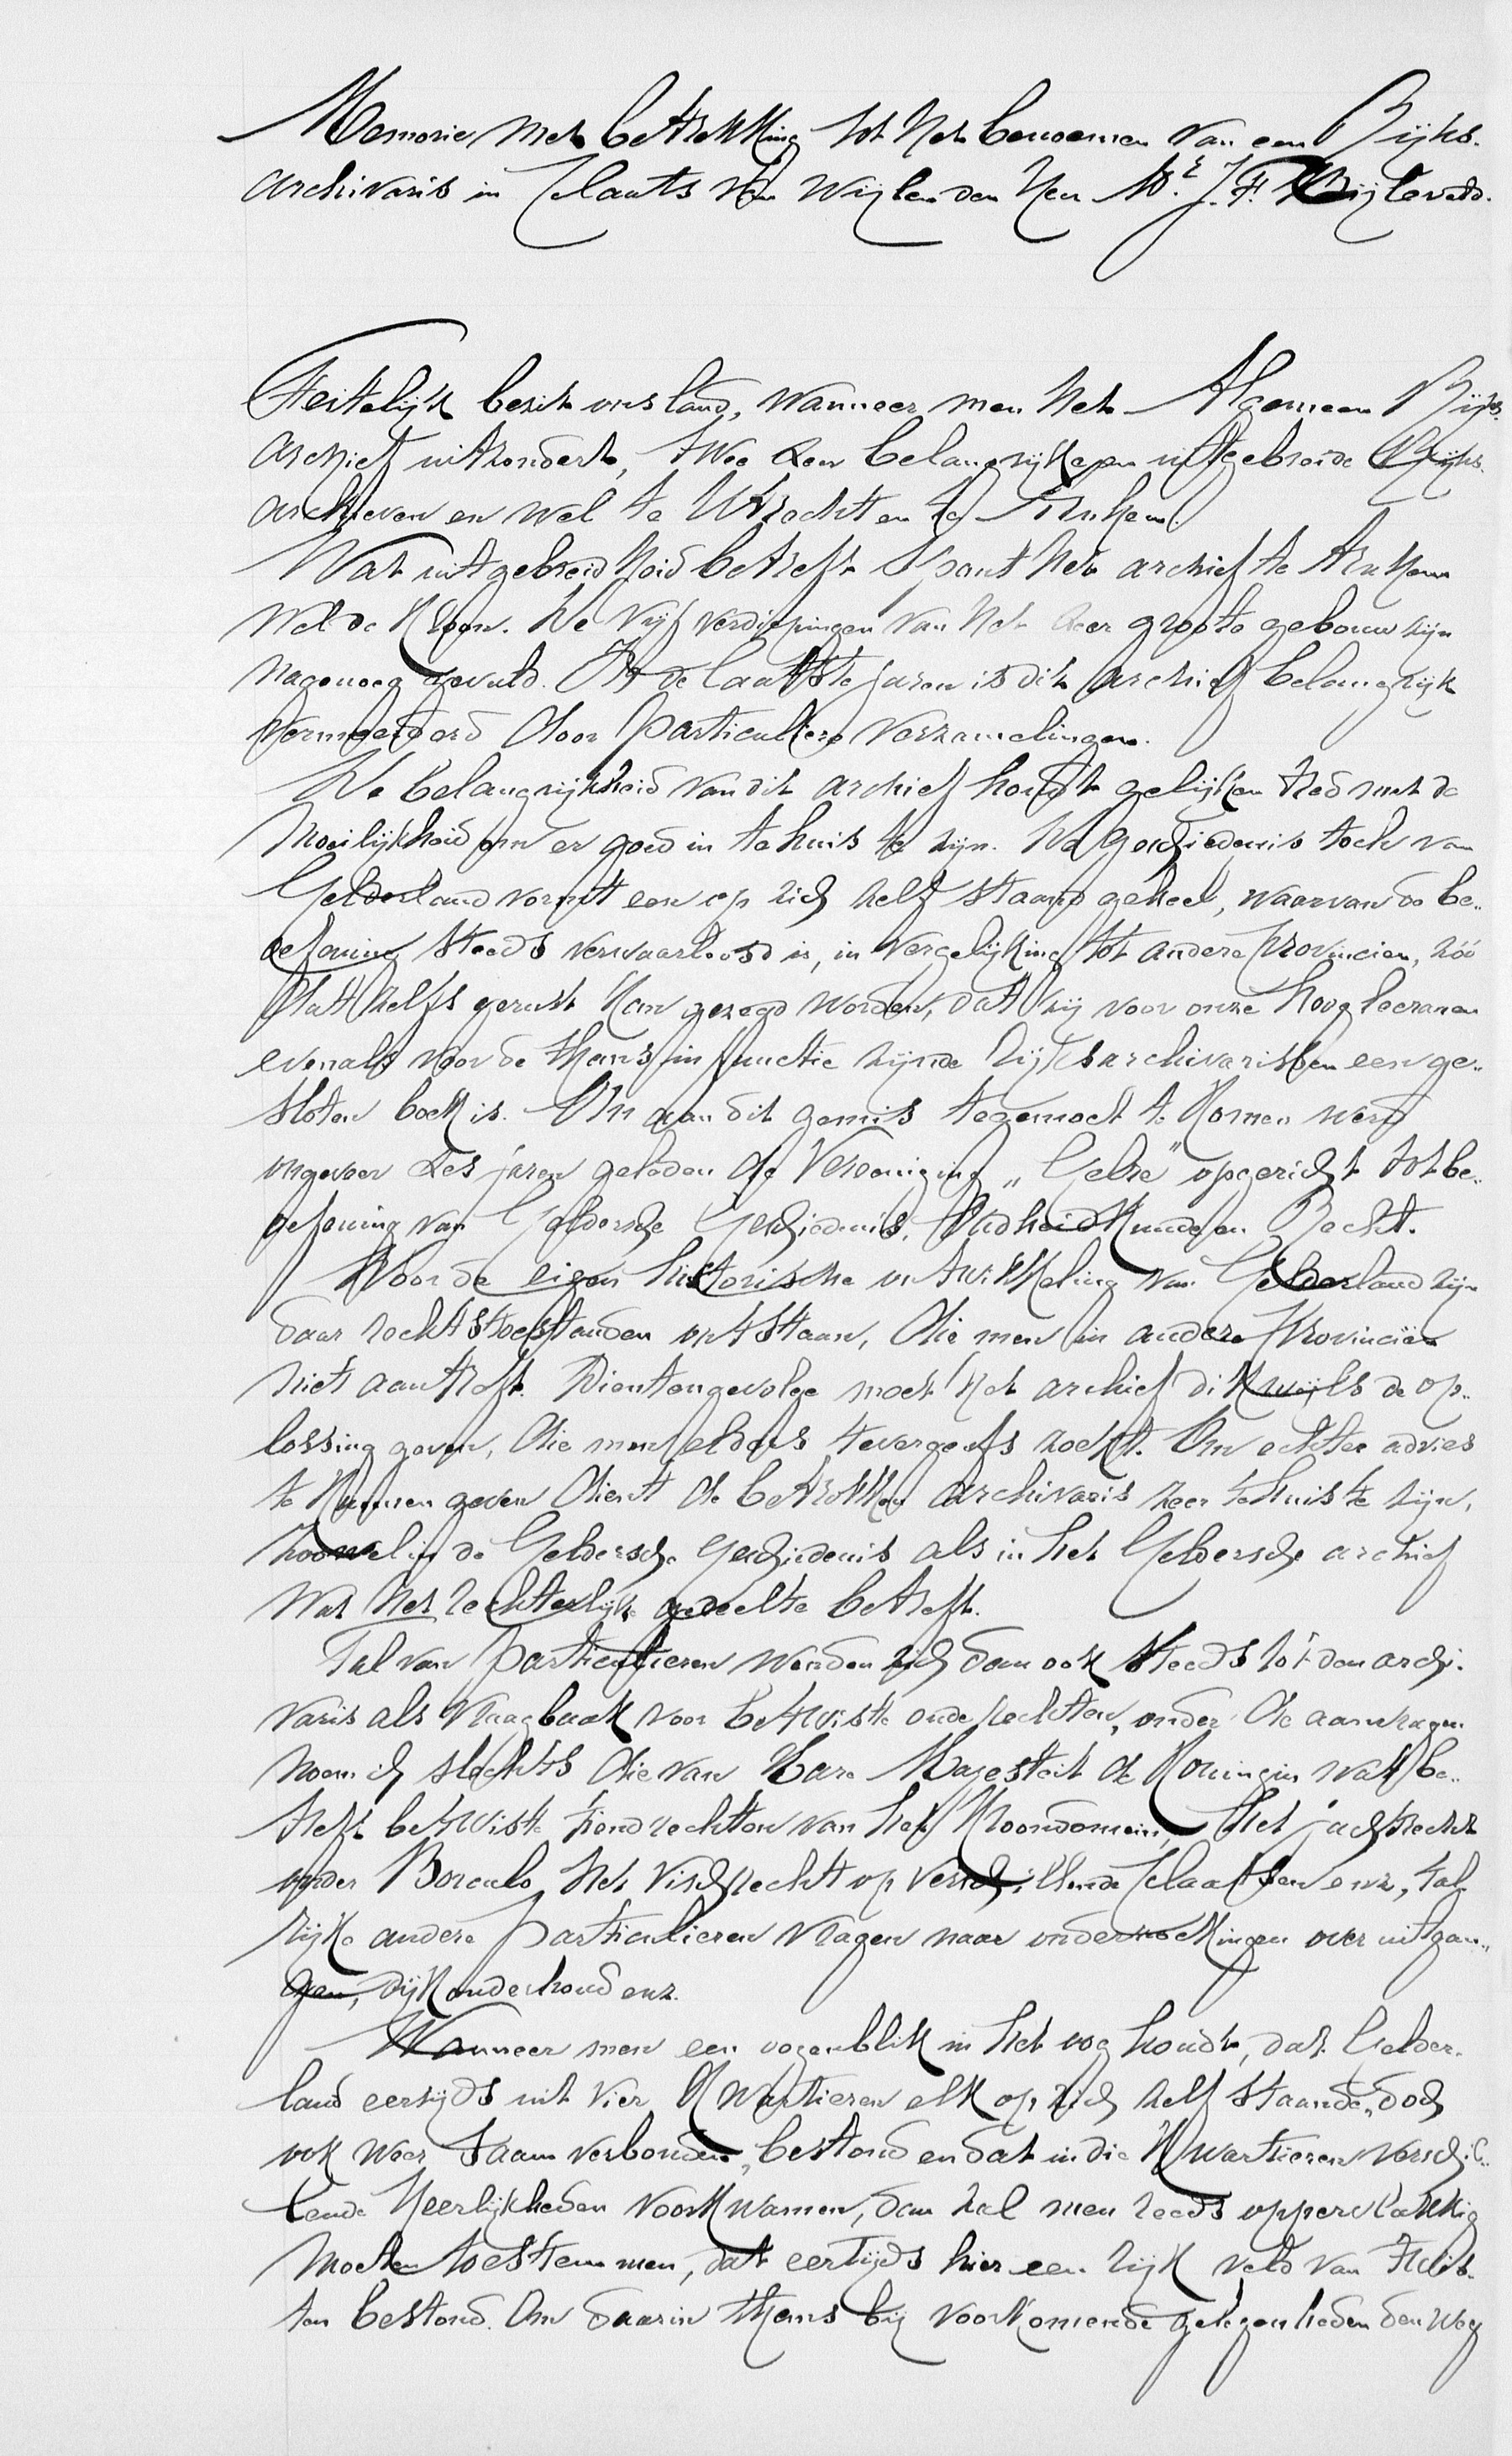 Memorie met betrekking tot het benoemen van een Rijks-
archivaris in plaats van wijlen den Heer Mr. J. F. Bijleveld.
Feitelijk bezit ons land, wanneer men het Algemeen Rijks-
archief uitzondert, twee zeer belangrijke en uitgebreide Rijks-
archieven en wel te Utrecht en te Arnhem.
Wat uitgebreidheid betreft spant het archief te Arnhem
wel de kroon. De vijf verdiepingen van het zeer groote gebouw zijn
nagenoeg gevuld. In de laatste jaren is dit archief belangrijk
vermeerderd door particuliere verzamelingen.
De belangrijkheid van dit archief houdt gelijken tred met de
moeilijkheid om er goed in tehuis te zijn. De geschiedenis toch van
Gelderland vormt een op zich zelf staand geheel, waarvan de be-
oefening steeds verwaarloosd is, in vergelijking tot andere provincien, zóó
dat zelfs gerust kan gezegd worden, dat zij voor onze hoogleeraren
evenals voor de thans in functie zijnde rijksarchivarissen een ge-
sloten boek is. Om aan dit gemis tegemoet te komen werd
ongeveer zes jaren geleden de Vereeniging „Gelre" opgericht tot be-
oefening van Geldersche Geschiedenis, Oudheidkunde en Recht.
Door de eigen historische ontwikkeling van Gelderland zijn
daar rechtstoestanden ontstaan, die men in andere provinciën
niet aantreft. Dientengevolge moet het archief dikwijls de op-
lossing geven, die men elders tevergeefs zoekt. Om echter advies
te kunnen geven dient de betrokken archivaris zeer tehuis te zijn,
zoowel in de Geldersche geschiedenis als in het Geldersche archief
wat het rechterlijke gedeelte betreft.
Tal van particulieren wenden zich dan ook steeds tot den archi-
varis als vraagbaak voor betwiste oude rechten, onder de aanvragen
noem ik slechts die van Hare Majesteit de Koningin wat be-
treft betwiste tiendrechten van het Kroondomein, het jachtrecht
onder Borculo, het vischrecht op verschillende plaatsen enz, tal-
rijke andere particulieren vragen naar onderzoekingen over uitgan-
gen, dijkonderhoud enz.
Wanneer men een oogenblik in het oog houdt, dat Gelder-
land eertijds uit vier Kwartieren elk op zich zelf staande, doch
ook weer saam verbonden, bestond en dat in die Kwartieren verschil-
lende Heerlijkheden voorkwamen, dan zal men reeds oppervlakkig
moeten toestemmen, dat eertijds hier een rijk veld van twis-
ten bestond. Om daarin thans bij voorkomende gelegenheden den weg